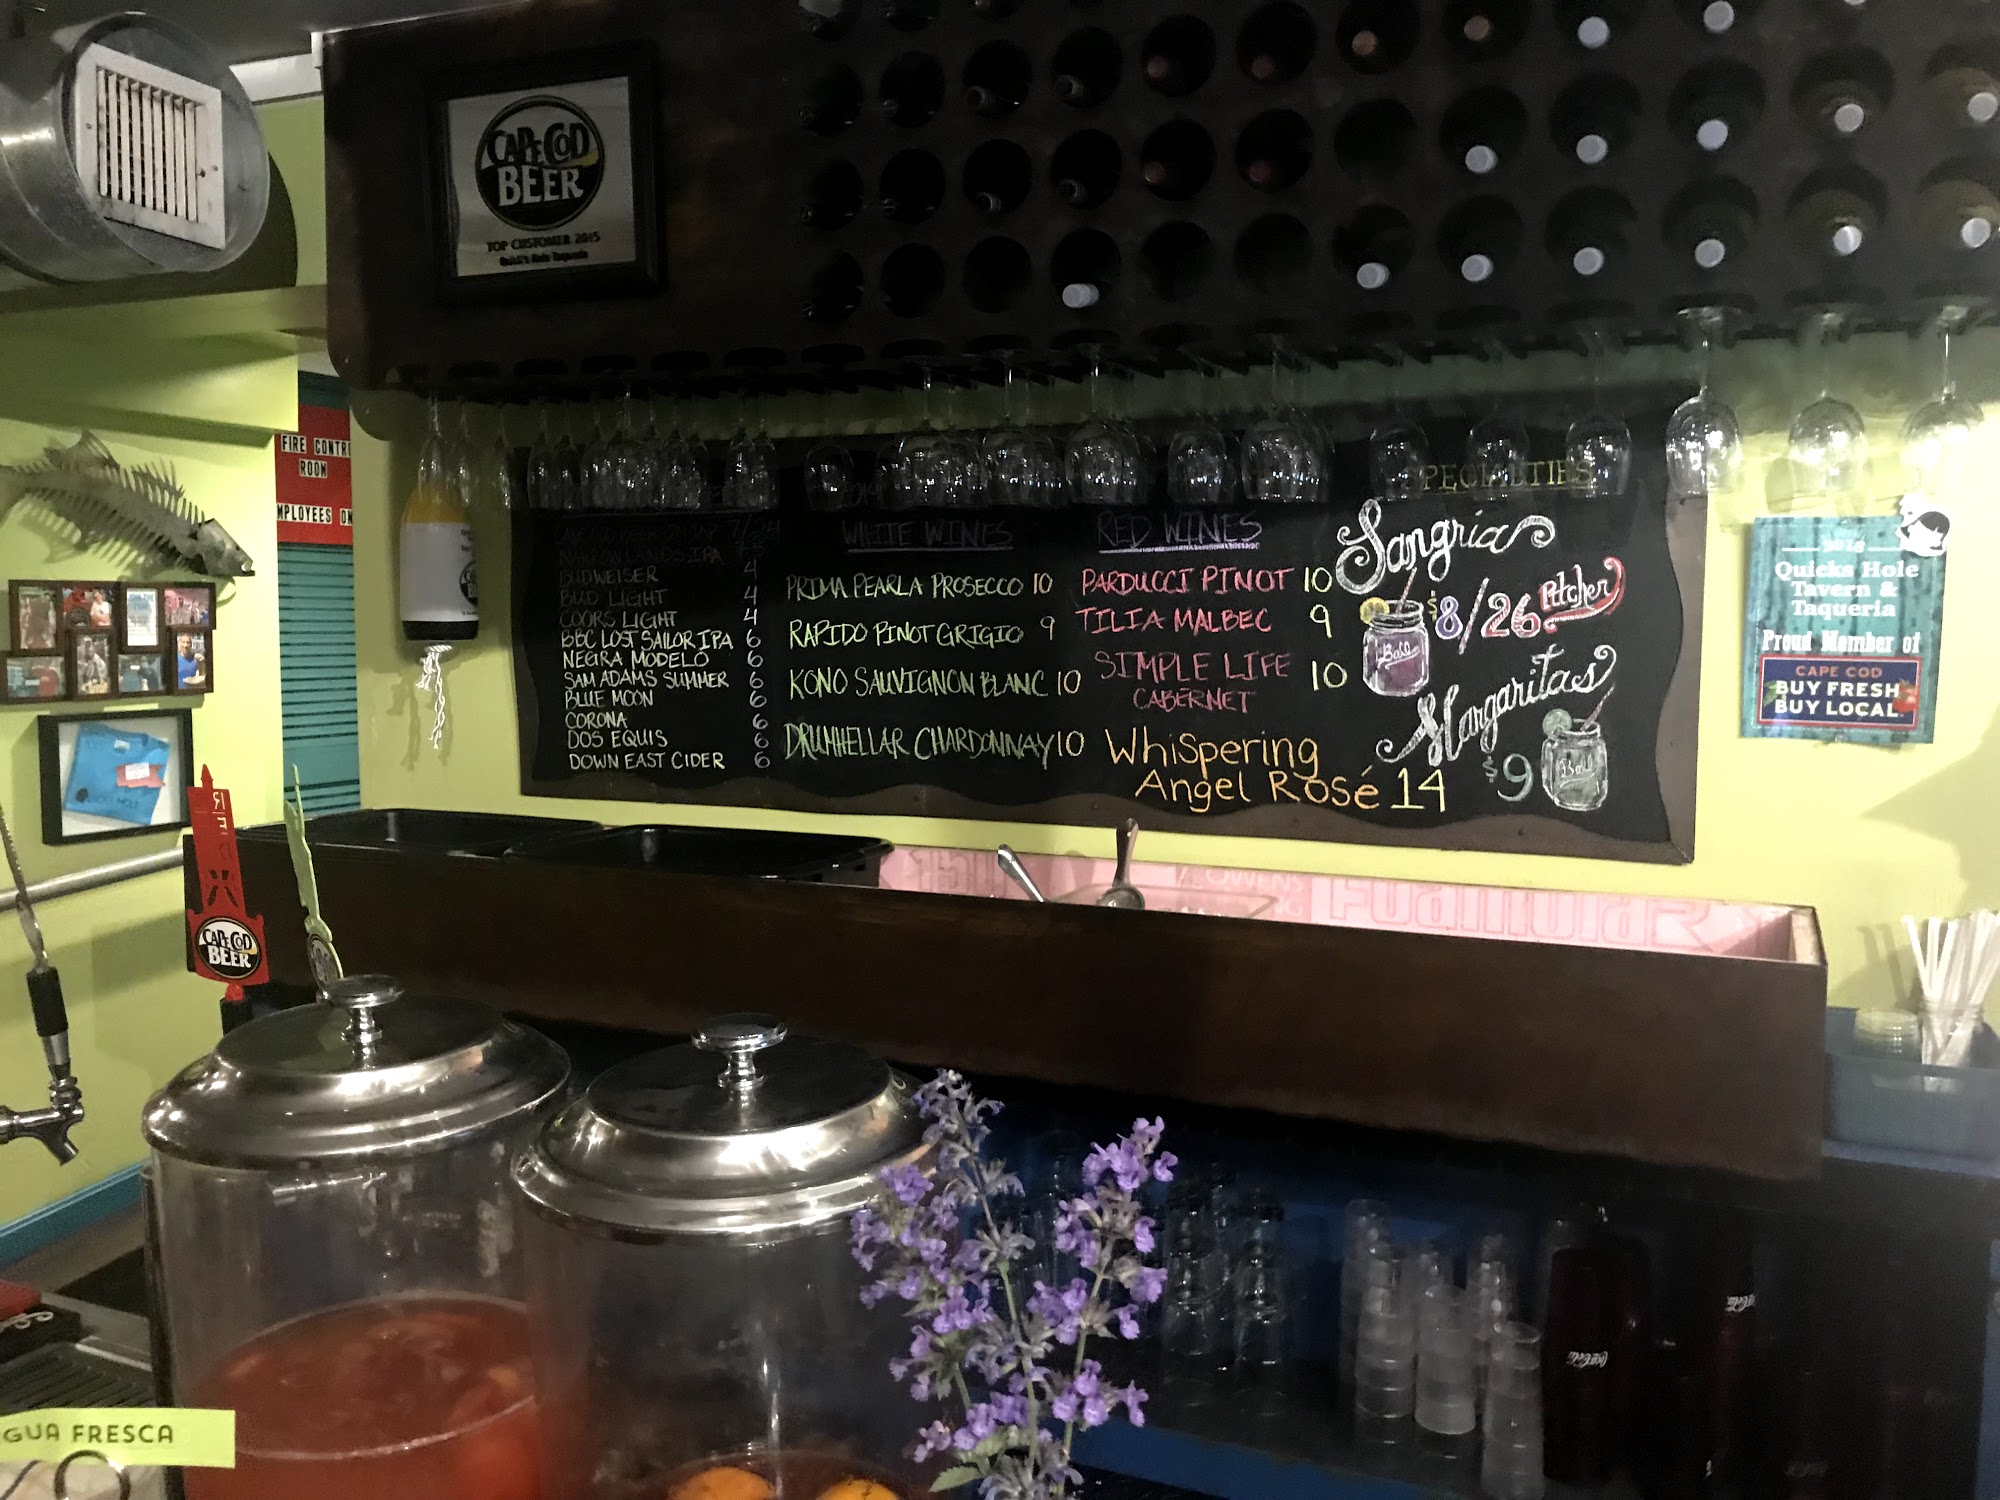 CAPE COD
BEER
TOP CUSTOMER 2015
Quick's Hole Taqueria
FIRE CONTR
ROOM
MPLOYEES ON
CAPE COD BEER 7/24
NARROW LANDS IPA
BUDWEISER 4
BUD LIGHT 4
COORS LIGHT 4
BBC LOST SAILOR IPA 6
NEGRA MODELO 6
SAM ADAMS SUMMER 6
BLUE MOON 6
CORONA 6
DOS EQUIS 6
DOWN EAST CIDER 6
WHITE WINES
PRIMA PEARLA PROSECCO 10
RAPIDO PINOT GRIGIO 9
KONO SAUVIGNON BLANC 10
DRUMHELLAR CHARDONNAY 10
RED WINES
PARDUCCI PINOT 10
TILIA MALBEC 9
SIMPLE LIFE 10
CABERNET
Whispering
Angel Rosé 14
SPECIALTIES
Sangria
$8/26 Pitcher
Ball
Margaritas
$9
Ball
2015
Quicks Hole
Tavern &
Taqueria
Proud Member of
CAPE COD
BUY FRESH
BUY LOCAL
OWENS
FOAMULAR
CAPE COD
BEER
GUA FRESCA
Coca-Cola
Coca-Cola